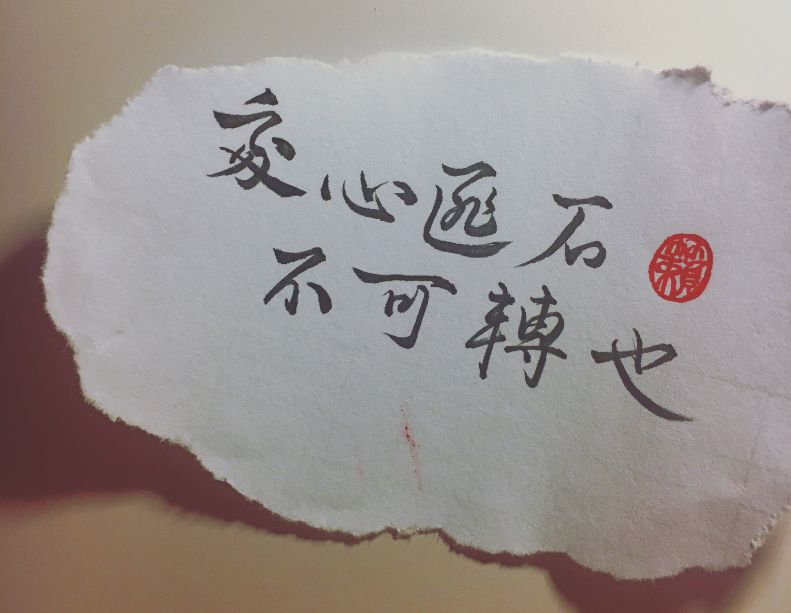 心匪石
不可轉也
賴